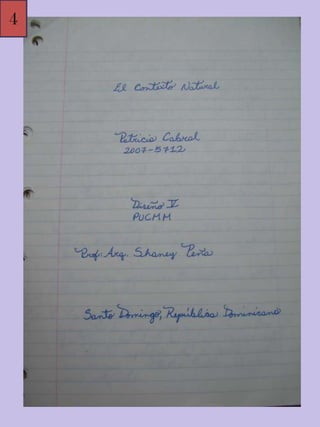 4
El Contexto Natural
Patricia Cabral
2007-5712
Diseño V
PUCMM
Prof: Arq. Shaney Peña
Santo Domingo, República Dominicana